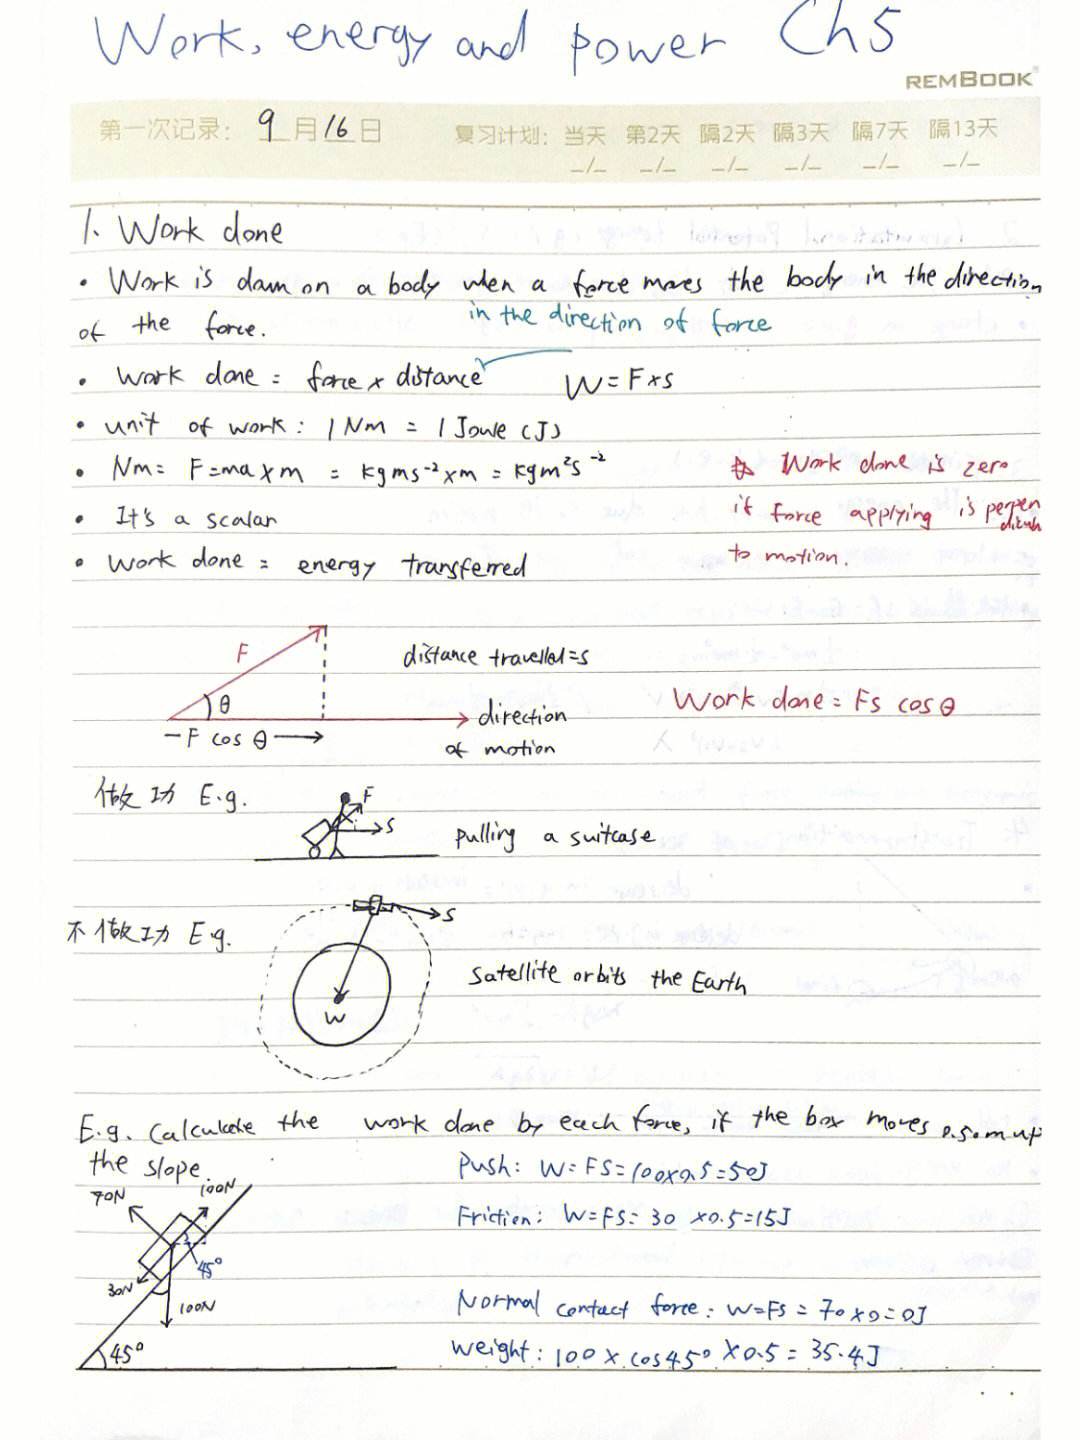 Work, energy and power Ch5
REMBOOK
第一次记录: 9月16日 复习计划: 当天 第2天 隔2天 隔3天 隔7天 隔13天
_/_ _/_ _/_ _/_ _/_ _/_
1. Work done
• Work is on a body when a force moves the body in the direction
of the force.
in the direction of force
• Work done = force x distance W = F x s
• unit of work: 1 Nm = 1 Joule (J)
• Nm = F=ma x m = kgms⁻² x m = kgm²s⁻²
• It's a scalar
• Work done = energy transferred
Work done is zero
if force applying is perpen
to motion.
F
θ
F cos θ
distance travelled = s
direction
of motion
Work done = Fs cos θ
做功 E.g.
F
s
pulling a suitcase
不做功 E.g.
s
W
Satellite orbits the Earth
E.g. Calculate the work done by each force, if the box moves 0.50m up
the slope.
70N
100N
45°
30N
100N
45°
Push: W = FS = 100x0.5 = 50J
Friction: W=FS= 30 x0.5=15J
Normal contact force: W=Fs = 70 x 0 = 0J
Weight: 100 x cos45° x 0.5 = 35.4J